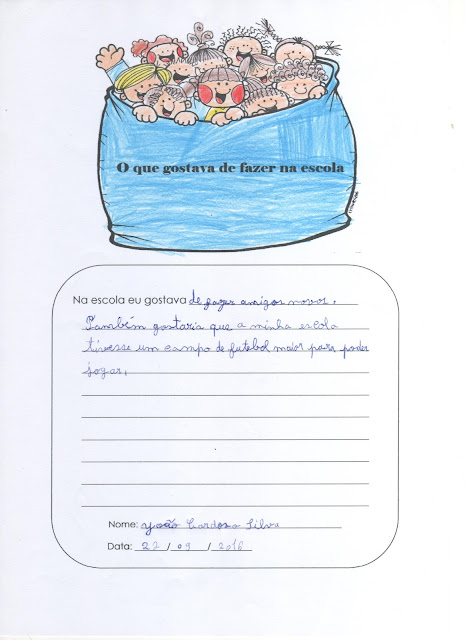 O que gostava de fazer na escola
Na escola eu gostava de fazer amigos novos.
Também gostaria que a minha escola
tivesse um campo de futebol maior para poder
jogar.
Nome: João Cardoso Silva
Data: 22 / 09 / 2016